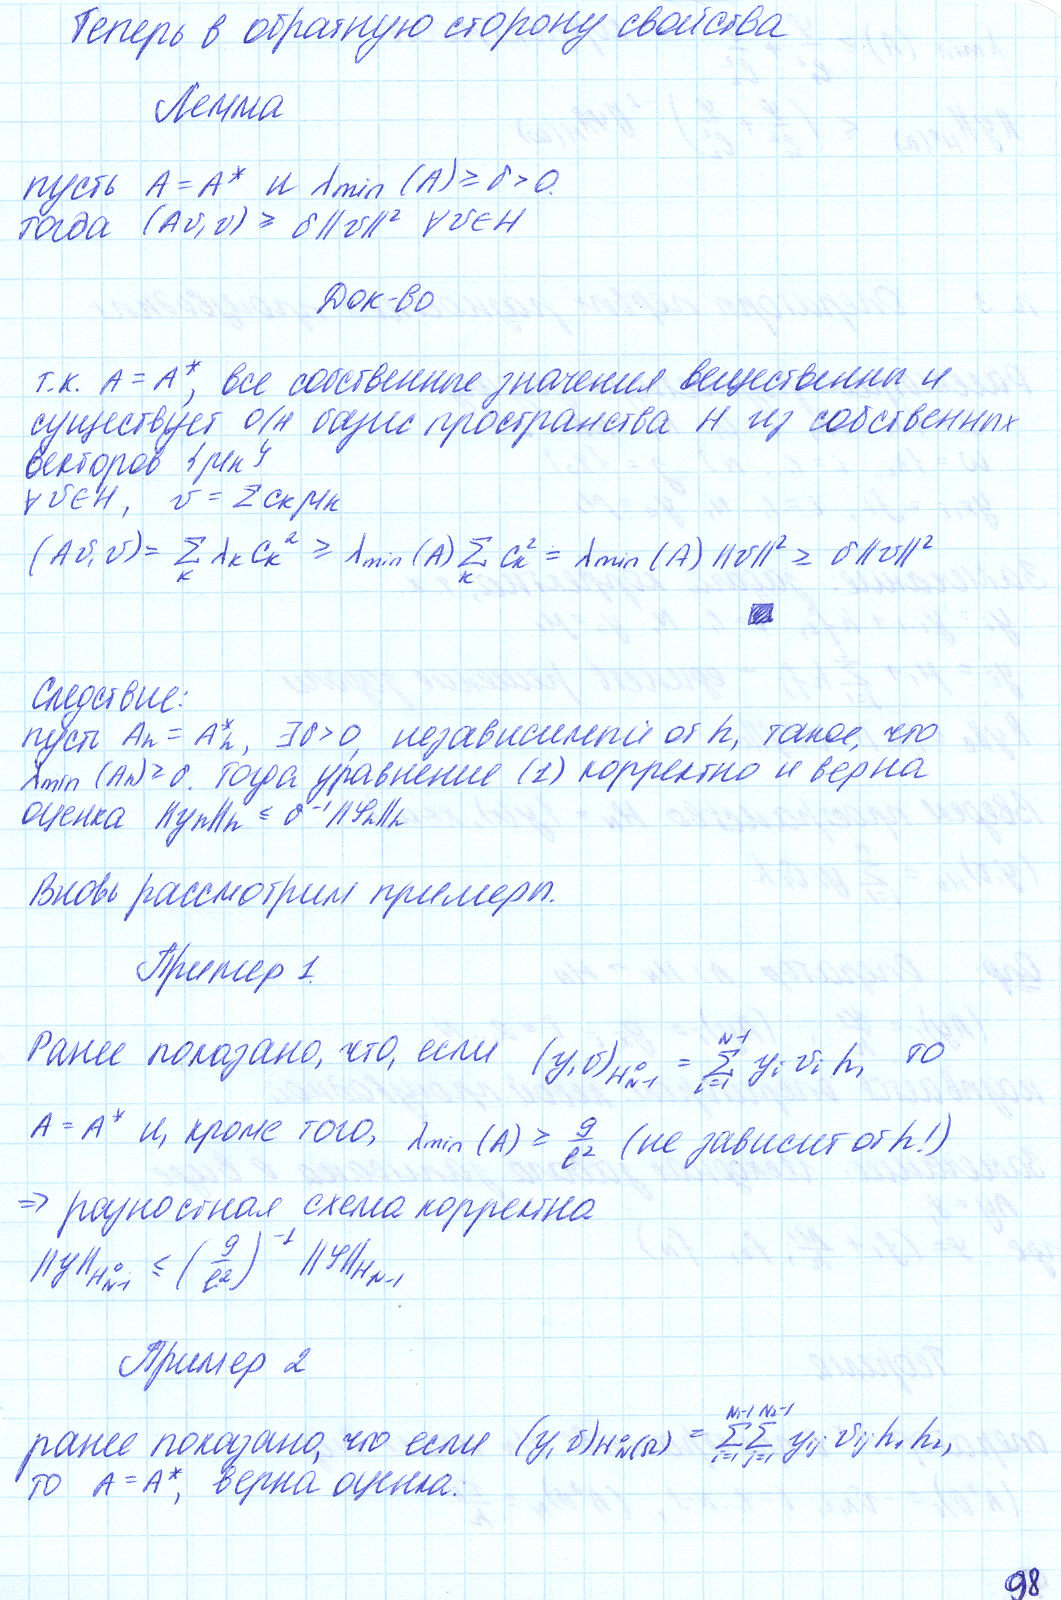 Теперь в обратную сторону свойства
Лемма
пусть A = A* и λmin (A) ≥ δ > 0.
тогда (Av, v) ≥ δ||v||² ∀ v ∈ H
Док-во
т.к. A = A*, все собственные значения вещественны и
существует о/н базис пространства H из собственных
векторов {μk}
∀ v ∈ H, v = Σ ck μk
(Av, v) = Σ_k λk ck² ≥ λmin (A) Σ_k ck² = λmin (A) ||v||² ≥ δ||v||²
Следствие:
пусть Ah = A*h, ∃ δ > 0, независимый от h, такое, что
λmin (Ah) ≥ δ. Тогда уравнение (1) корректно и верна
оценка ||yh||h ≤ δ⁻¹ ||φh||h
Вновь рассмотрим примеры.
Пример 1.
Ранее показано, что, если (y, v)_{H°_{N-1}} = Σ_{i=1}^{N-1} yi vi h, то
A = A* и, кроме того, λmin (A) ≥ 9/ℓ² (не зависит от h!)
⇒ разностная схема корректна
||y||_{H°_{N-1}} ≤ (9/ℓ²)⁻¹ ||φ||_{H_{N-1}}
Пример 2
ранее показано, что если (y, v)_{H°_N(Ω)} = Σ_{i=1}^{N₁-1} Σ_{j=1}^{N₂-1} yij vij h₁ h₂,
то A = A*, верна оценка:
98